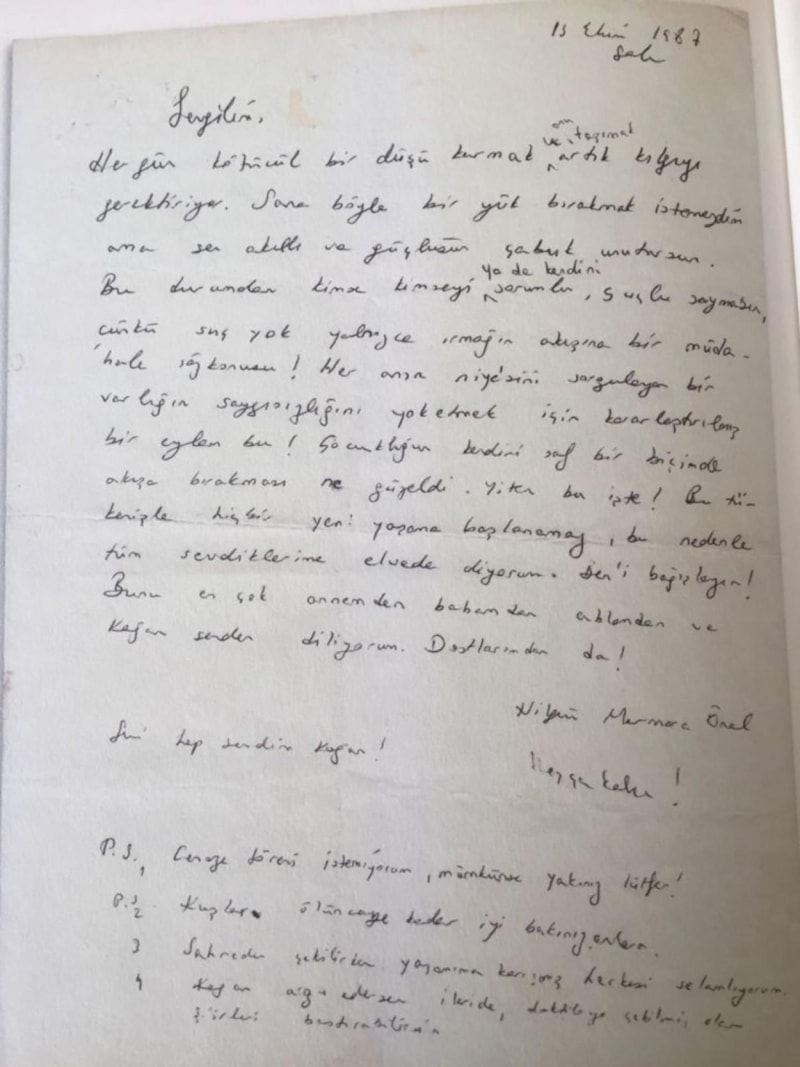 13 Ekim 1987
Salı
Sevgilim,
Her gün kötücül bir düşü kurmak ve onu taşımak artık kılgıyı
gerektiriyor. Sana böyle bir yük bırakmak istemezdim
ama sen akıllı ve güçlüsün çabuk unutursun.
Bu durumdan kimse kimseyi ya da kendini sorumlu, suçlu saymasın,
çünkü suç yok yalnızca ırmağın akışına bir müda-
hale sözkonusu! Her anın niye'sini sorgulayan bir
varlığın saygısızlığını yoketmek için kararlaştırılmış
bir eylem bu! Çocukluğun kendini saf bir biçimde
akışa bırakması ne güzeldi. Yiten bu işte! Bu tü-
kenişle hiçbir yeni yaşama başlanamaz, bu nedenle
tüm sevdiklerime elveda diyorum. Ben'i bağışlayın!
Bunu en çok annemden babamdan ablamdan ve
Kağan senden diliyorum. Dostlarımdan da!
Nilgün Marmara Önal
Seni hep sevdim Kağan!
Hoşçakalın!
P.S.1 Cenaze töreni istemiyorum, mümkünse yakınız lütfen!
P.S.2 Kuşlara ölünceye kadar iyi bakınız onlara.
3 Sahneden çekilirken yaşamıma karışmış herkesi selamlıyorum.
4 Kağan arzu edersen ileride, daktiloya çekilmiş olan
şiirleri bastırabilirsin